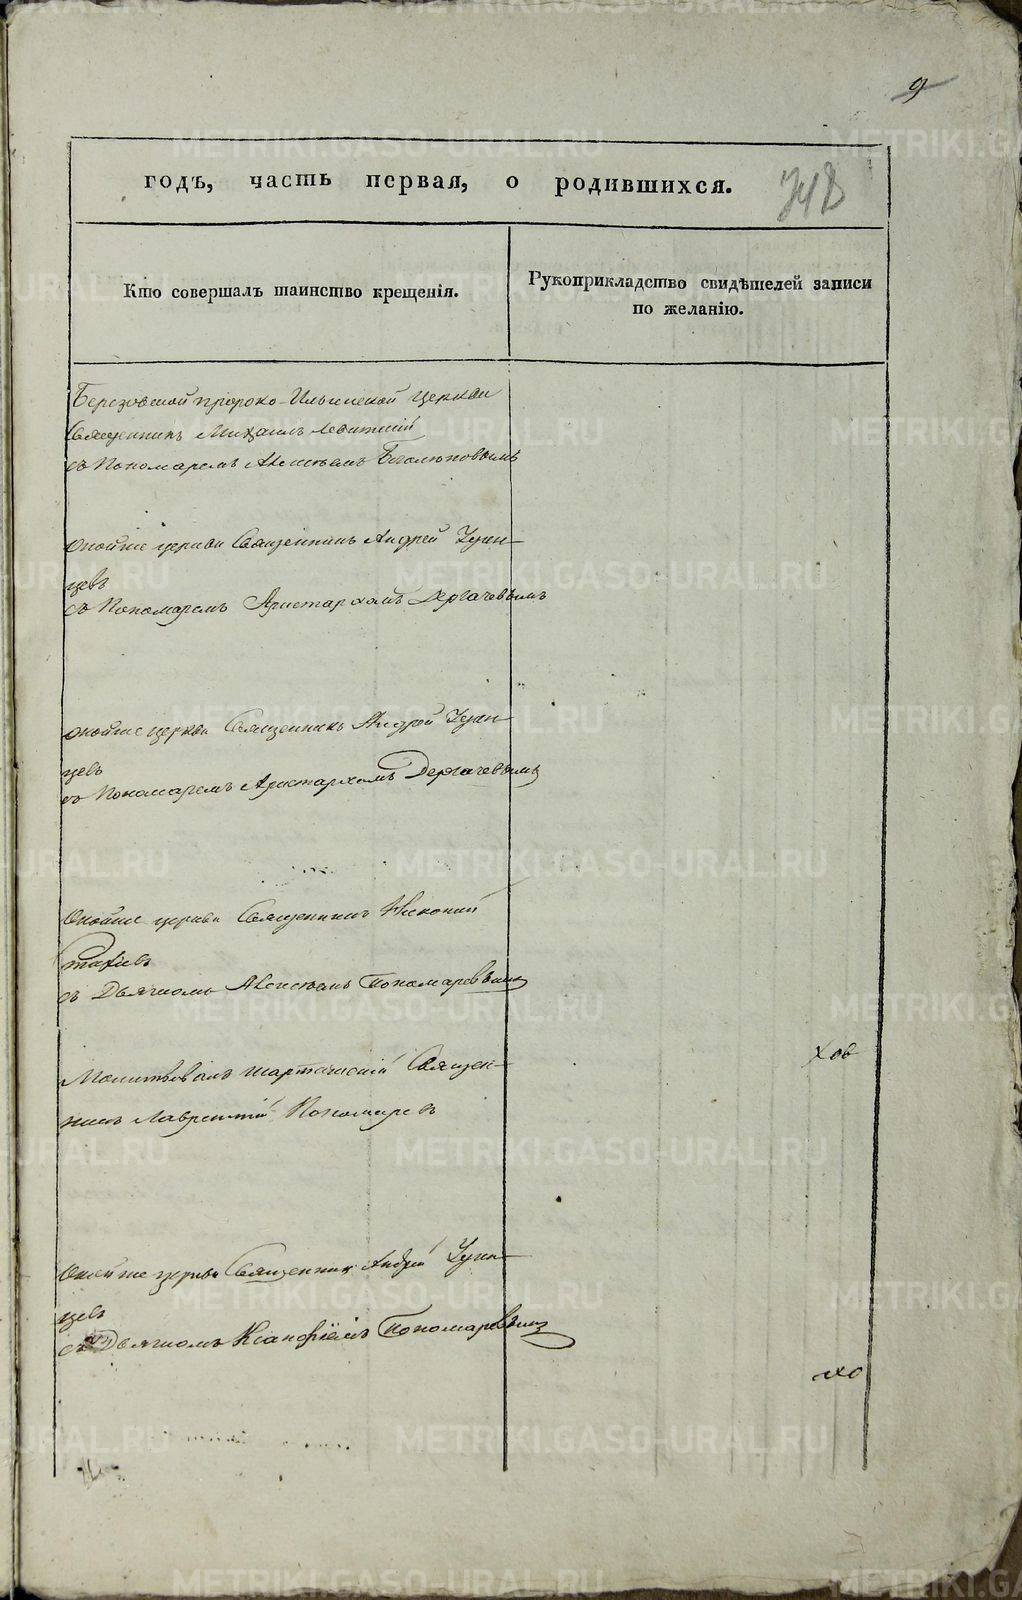 9
годъ, часть первая, о родившихся. 742
Кто совершалъ таинство крещенія.
Рукоприкладство свидѣтелей записи
по желанію.
Березовской пророко-Ильинской церкви
Священникъ Михаилъ Левитскій
съ Пономаремъ Алексѣемъ
Оной же церкви Священникъ Андрей Удин-
цевъ
съ Пономаремъ Аристархомъ Дергачевымъ
оной же церкви Священникъ Андрей Удин-
цевъ
съ Пономаремъ Аристархомъ Дергачевымъ
Оной же церкви Священникъ
съ Дьячкомъ Алексѣемъ Пономаревымъ
Молитвовалъ шарташскій Священ-
никъ Лаврентій Пономаревъ
Оной же церкви Священникъ Андрей Удин-
цевъ
съ Дьячкомъ Ксанфіемъ Пономаревымъ
METRIKI.GASO-URAL.RU